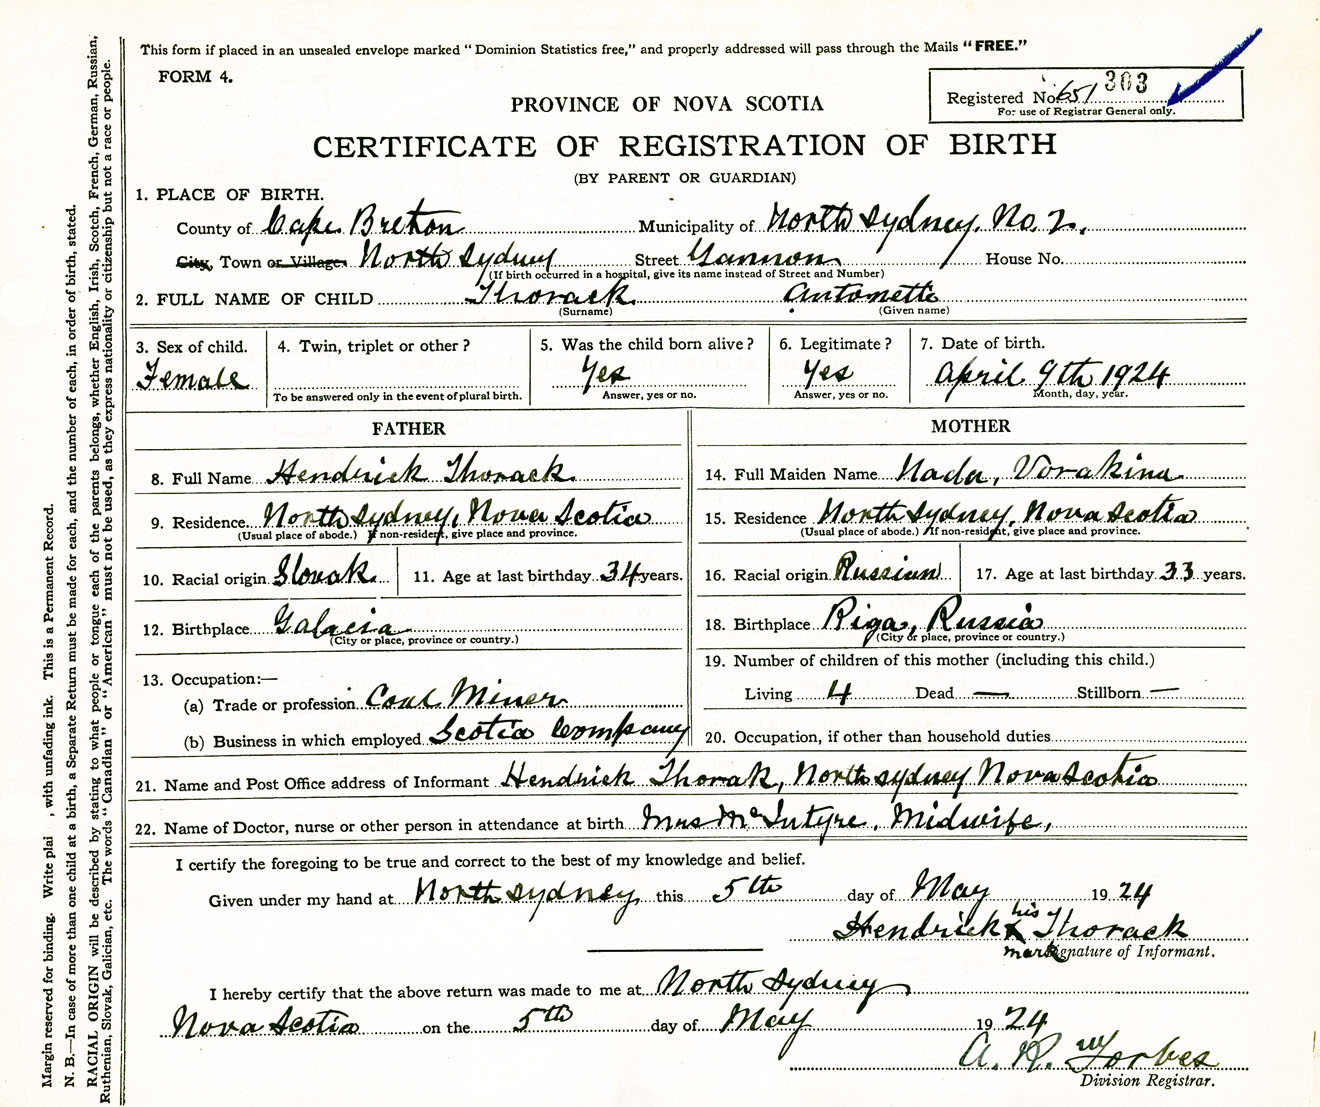 This form if placed in an unsealed envelope marked "Dominion Statistics free," and properly addressed will pass through the Mails "FREE."
FORM 4.
Registered No. 651 303
For use of Registrar General only.
PROVINCE OF NOVA SCOTIA
CERTIFICATE OF REGISTRATION OF BIRTH
(BY PARENT OR GUARDIAN)
1. PLACE OF BIRTH.
County of Cape Breton Municipality of North Sydney. No. 2.
City, Town or Village North Sydney Street Gannon House No.
(If birth occurred in a hospital, give its name instead of Street and Number)
2. FULL NAME OF CHILD Thorack Antonette
(Surname) (Given name)
3. Sex of child. 4. Twin, triplet or other? 5. Was the child born alive? 6. Legitimate? 7. Date of birth.
Female Yes Yes April 9th 1924
To be answered only in the event of plural birth. Answer, yes or no. Answer, yes or no. Month, day, year.
FATHER MOTHER
8. Full Name Hendrick Thorack. 14. Full Maiden Name Nada, Vorakina
9. Residence. North Sydney, Nova Scotia 15. Residence North Sydney, Nova Scotia
(Usual place of abode.) If non-resident, give place and province. (Usual place of abode.) If non-resident, give place and province.
10. Racial origin Slovak. 11. Age at last birthday 34 years. 16. Racial origin Russian 17. Age at last birthday 33 years.
12. Birthplace Galacia 18. Birthplace Riga, Russia
(City or place, province or country.) (City or place, province or country.)
19. Number of children of this mother (including this child.)
13. Occupation:—
Living 4 Dead — Stillborn —
(a) Trade or profession Coal Miner
(b) Business in which employed Scotia Company 20. Occupation, if other than household duties
21. Name and Post Office address of Informant Hendrick Thorak, North Sydney Nova Scotia
22. Name of Doctor, nurse or other person in attendance at birth Mrs McIntyre. Midwife,
I certify the foregoing to be true and correct to the best of my knowledge and belief.
Given under my hand at North Sydney, this 5th day of May 1924
Hendrick his x mark Thorack
Signature of Informant.
I hereby certify that the above return was made to me at North Sydney
Nova Scotia on the 5th day of May 1924
A. R. Forbes
Division Registrar.
Margin reserved for binding. Write plai , with unfading ink. This is a Permanent Record.
N. B.—In case of more than one child at a birth, a Separate Return must be made for each, and the number of each, in order of birth, stated.
RACIAL ORIGIN will be described by stating to what people or tongue each of the parents belongs, whether English, Irish, Scotch, French, German, Russian,
Ruthenian, Slovak, Galician, etc. The words "Canadian" or "American" must not be used, as they express nationality or citizenship but not a race or people.